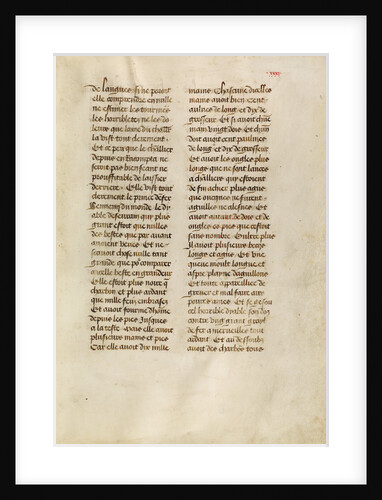 xxxv
de langues si ne pouoit
elle comprendre en nulle
ne estimer les tourmens
les horriblete ne les do
leurs que lame du chlr
la vist tout clerement
Et ce par que le chlier
depuis en
seroit pas bien seant ne
prouffitable de laissier
derriere Elle vist tout
clerement le prince des
tenebres du monde le dy
able denfer qui plus
grant estoit que nulles
des bestes que par auant
auoient veues Et ne
scauoit chose nulle tant
grande que on comparer
a celle beste en grandeur
Elle estoit plus noire que
charbon et plus ardant
que mille feux embrasez
Et auoit fourme dhome
depuis les piez Jusques
a la teste Mais elle auoit
plusieurs mains et piez
Car elle auoit dix mille
mains Chascune dicelles
mains auoit bien Cent
aulnes de long et dix de
grosseur Et si auoit chune
main vingt dois Et chun
doit auoit cent paulmes
de long et dix de grosseur
Et auoit les ongles plus
longues que ne sont lances
a challiers qui estoient
de fin achier plus agus
que oncques ne furent
aguilles ne alesnes Et
auoit autant de dois et de
ongles es piez que cestoit
sans nombre Oultre plus
Il auoit plusieurs becqs
longs et agus Et vne
queue moult longue et
aspre plaine daguillons
Et toute appareilliee de
greuer et mal faire aux
poures ames Et se gesoit
cel horrible dyable son dos
contre vng grant gravil
de fer a merueilles tout
ardant Et au dessoubz
auoit des charbons tous